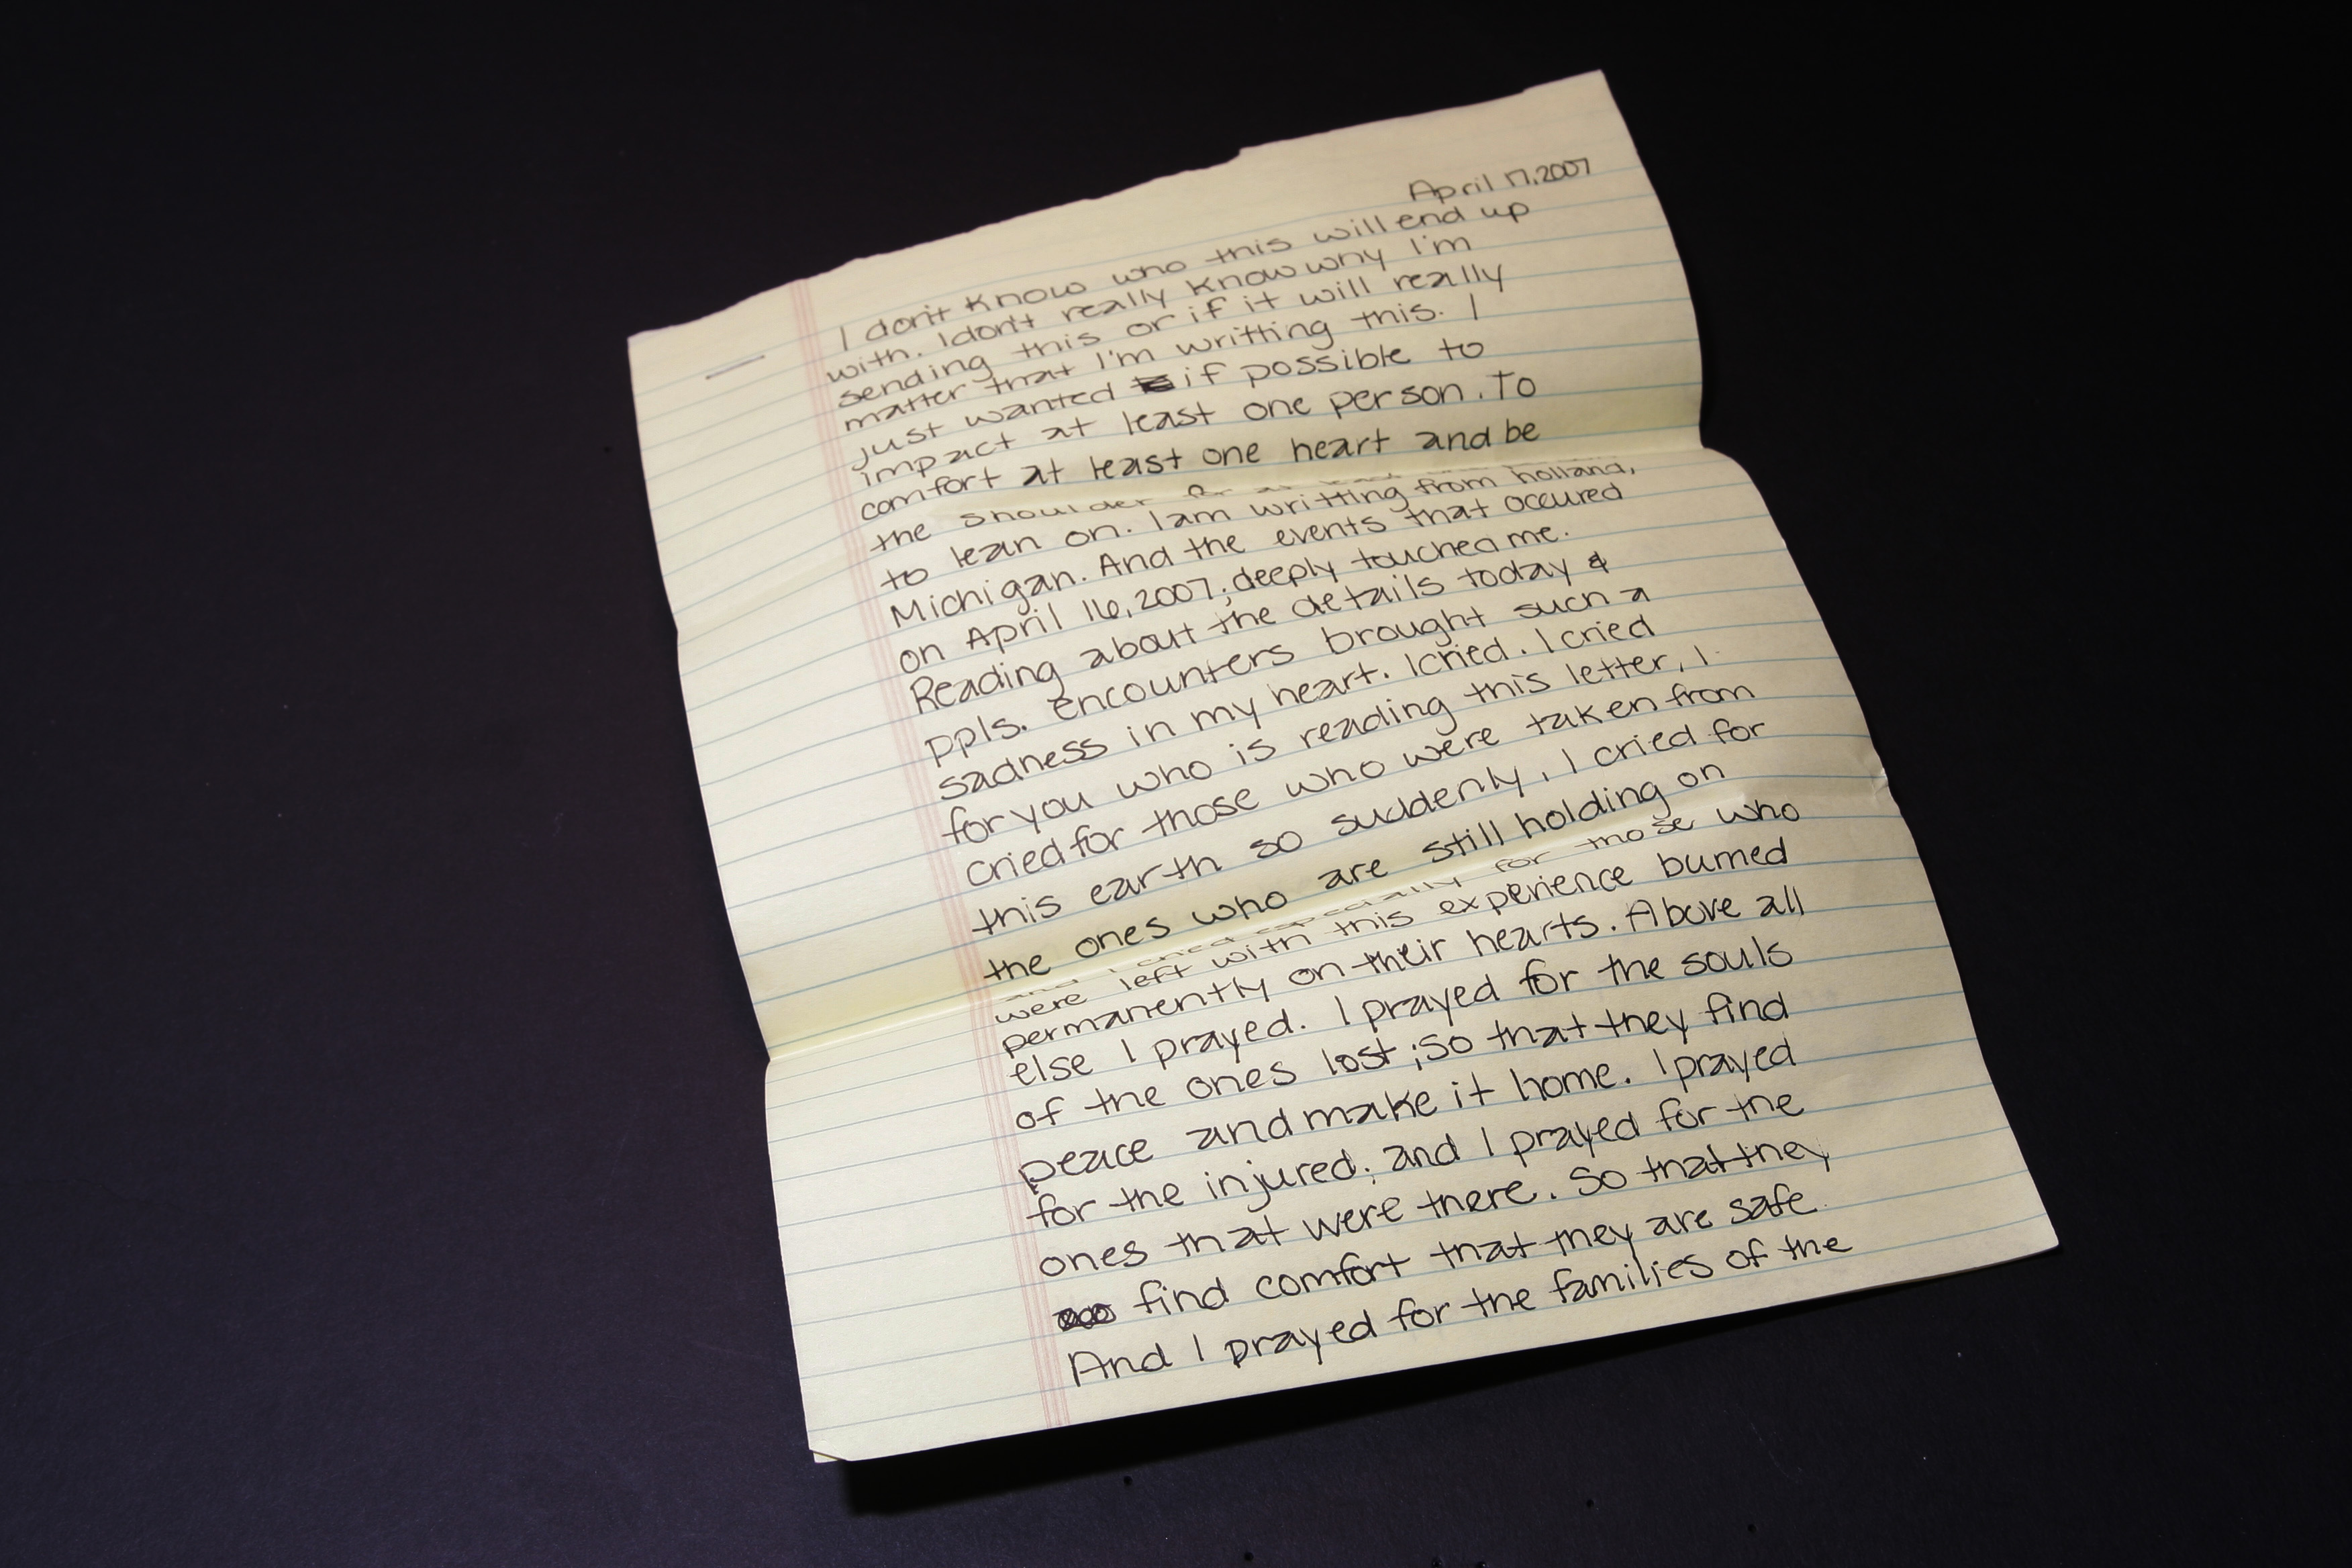 April 17, 2007
I don't know who this will end up
with. I don't really know why I'm
sending this or if it will really
matter that I'm writting this. I
just wanted if possible to
impact at least one person. To
comfort at least one heart and be
the shoulder for at least
to lean on. I am writting from holland,
Michigan. And the events that occured
on April 16, 2007; deeply touched me.
Reading about the details today &
ppls. encounters brought such a
sadness in my heart. I cried. I cried
for you who is reading this letter, I
cried for those who were taken from
this earth so suddenly, I cried for
the ones who are still holding on
and I cried especially for those who
were left with this experience burned
permanently on their hearts. Above all
else I prayed. I prayed for the souls
of the ones lost; So that they find
peace and make it home. I prayed
for the injured; and I prayed for the
ones that were there. So that they
find comfort that they are safe.
And I prayed for the families of the